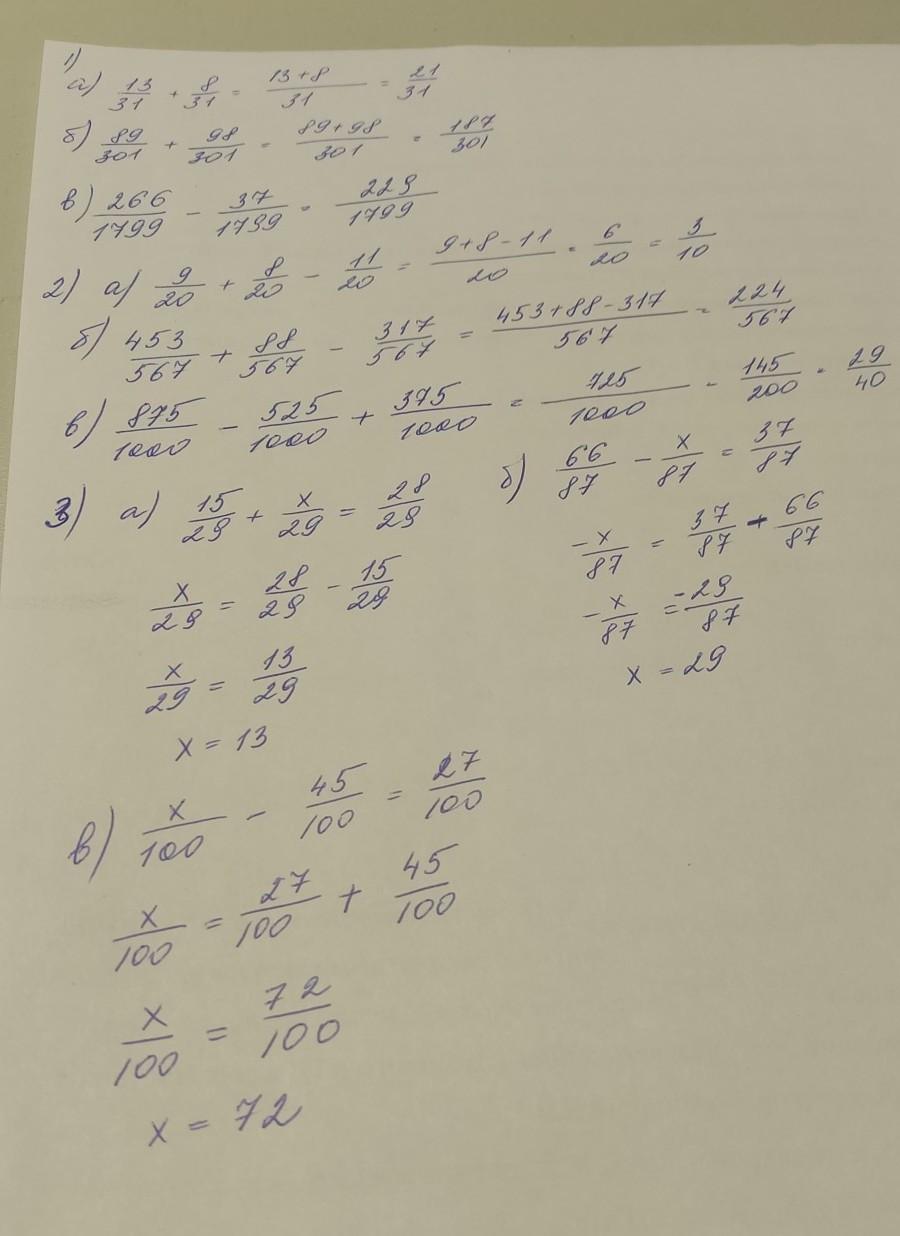 1)
а) 13/31 + 8/31 = 13+8/31 = 21/31
б) 89/301 + 98/301 = 89+98/301 = 187/301
в) 266/1799 - 37/1799 = 229/1799
2) а) 9/20 + 8/20 - 11/20 = 9+8-11/20 = 6/20 = 3/10
б) 453/567 + 88/567 - 317/567 = 453+88-317/567 = 224/567
в) 875/1000 - 525/1000 + 375/1000 = 725/1000 = 145/200 = 29/40
3) а) 15/29 + x/29 = 28/29
x/29 = 28/29 - 15/29
x/29 = 13/29
x = 13
б) 66/87 - x/87 = 37/87
-x/87 = 37/87 - 66/87
-x/87 = -29/87
x = 29
в) x/100 - 45/100 = 27/100
x/100 = 27/100 + 45/100
x/100 = 72/100
x = 72